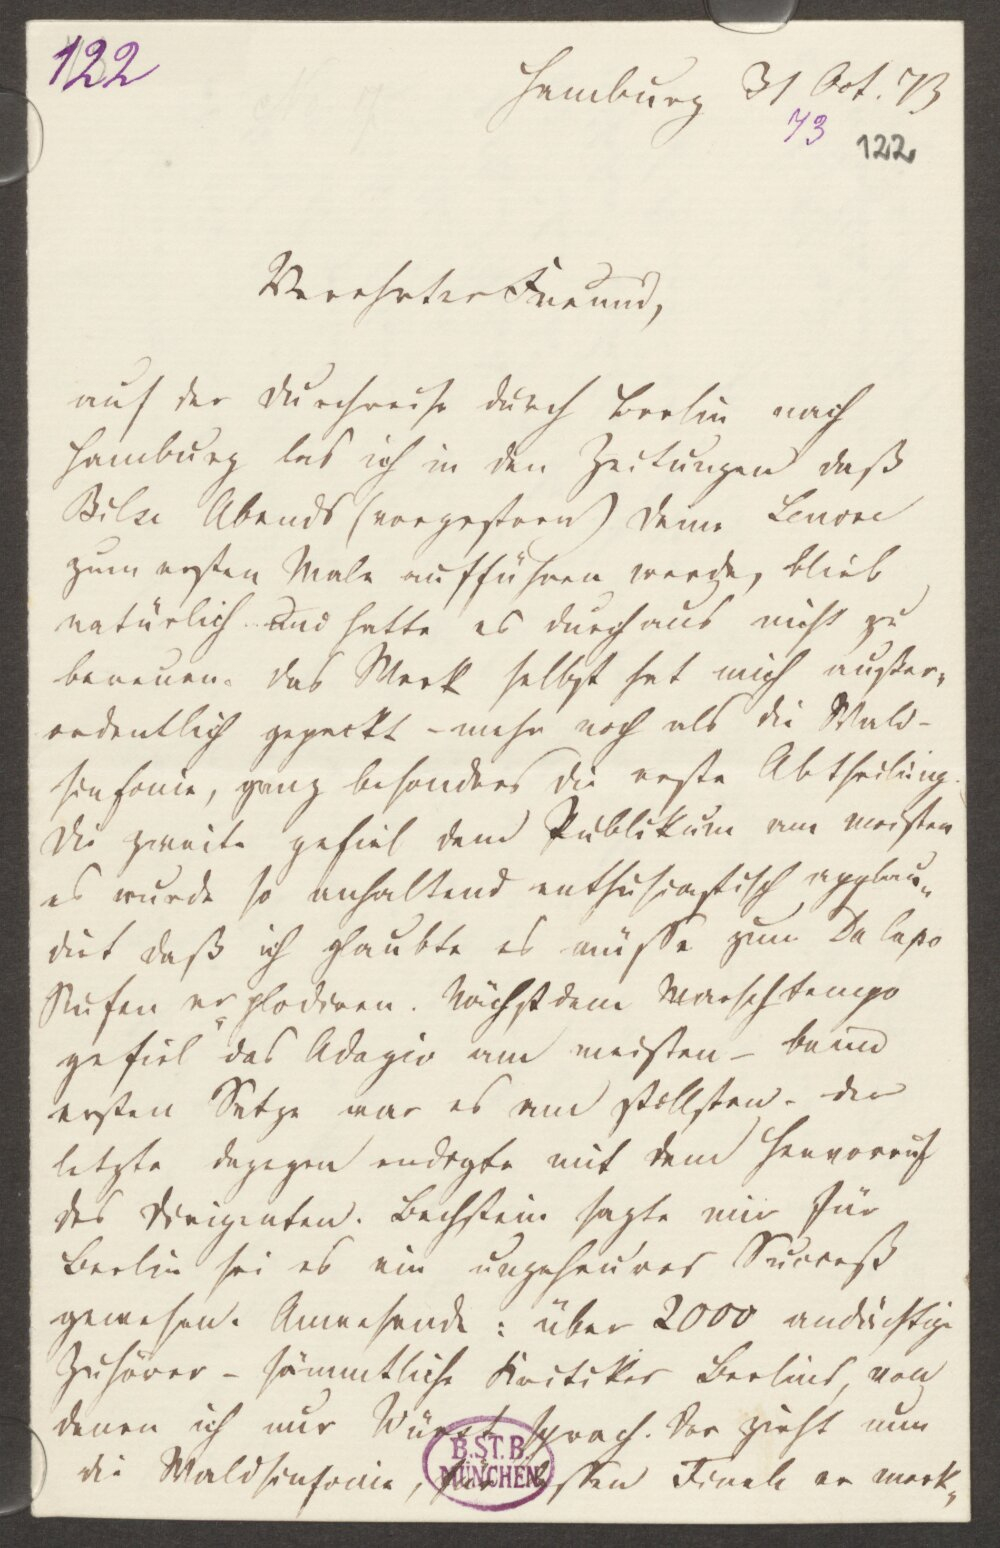 122
Hamburg 31 Oct. 73
73
122
Verehrter Freund,
auf der Durchreise durch Berlin nach
Hamburg las ich in den Zeitungen daß
Bilse Abends (vorgestern) Deine Lenore
zum ersten Male aufführen werde, blieb
natürlich und hatte es durchaus nicht zu
bereuen. Das Werk selbst hat mich außer-
ordentlich gepackt – mehr noch als die Wald-
sinfonie, ganz besonders die erste Abtheilung.
Die zweite gefiel dem Publikum am meisten
es wurde so anhaltend enthusiastisch applau-
dirt daß ich glaubte es müsse zum Da Capo
Rufen explodiren. Nächst dem Marschtempo
gefiel das Adagio am meisten – beim
ersten Satze war es am stillsten. Der
letzte dagegen endigte mit dem Hervorruf
des Dirigenten. Bechstein sagte mir für
Berlin sei es ein ungeheures Succeß
gewesen. Anwesende: über 2000 andächtige
Zuhörer – sämmtliche Kritiker Berlins, von
denen ich nur Würst sprach. Der zieht nun
die Waldsinfonie, für dessen Finale er merk-
B.ST.B.
MÜNCHEN